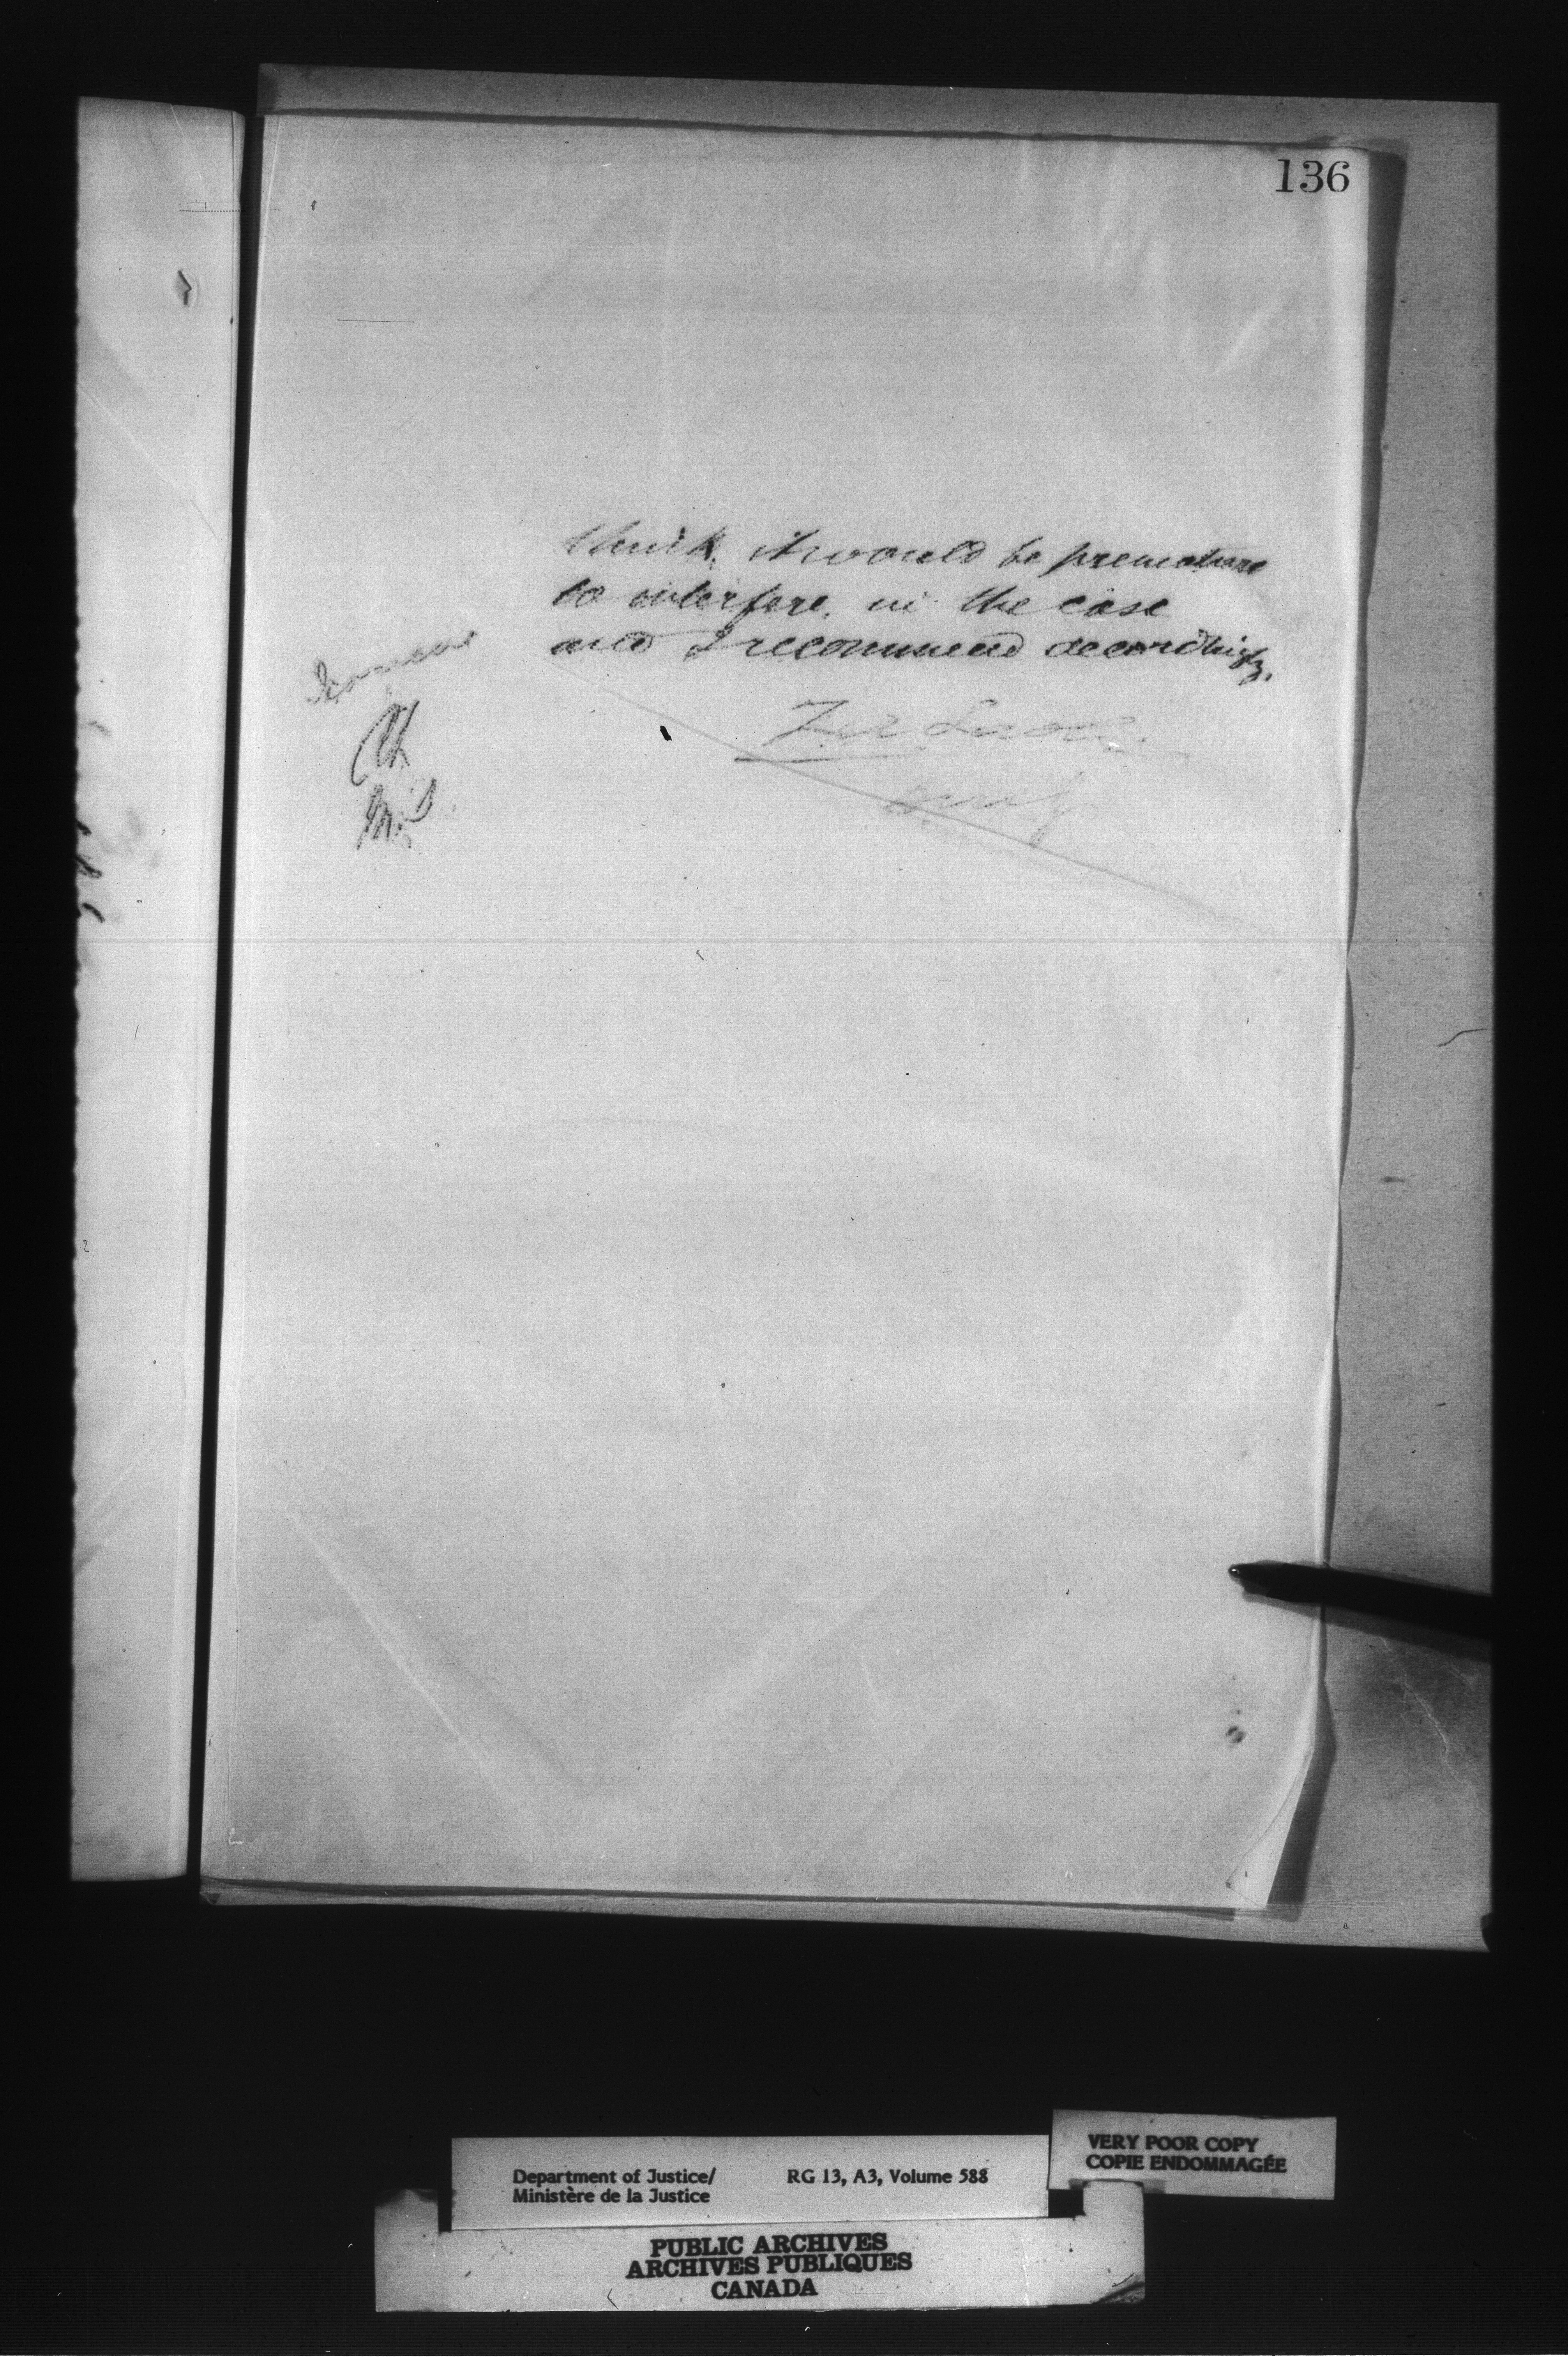 136
think it would be premature
to interfere in the case
and I recommend accordingly.
I concur
Department of Justice/
Ministère de la Justice
RG 13, A3, Volume 588
VERY POOR COPY
COPIE ENDOMMAGÉE
PUBLIC ARCHIVES
ARCHIVES PUBLIQUES
CANADA